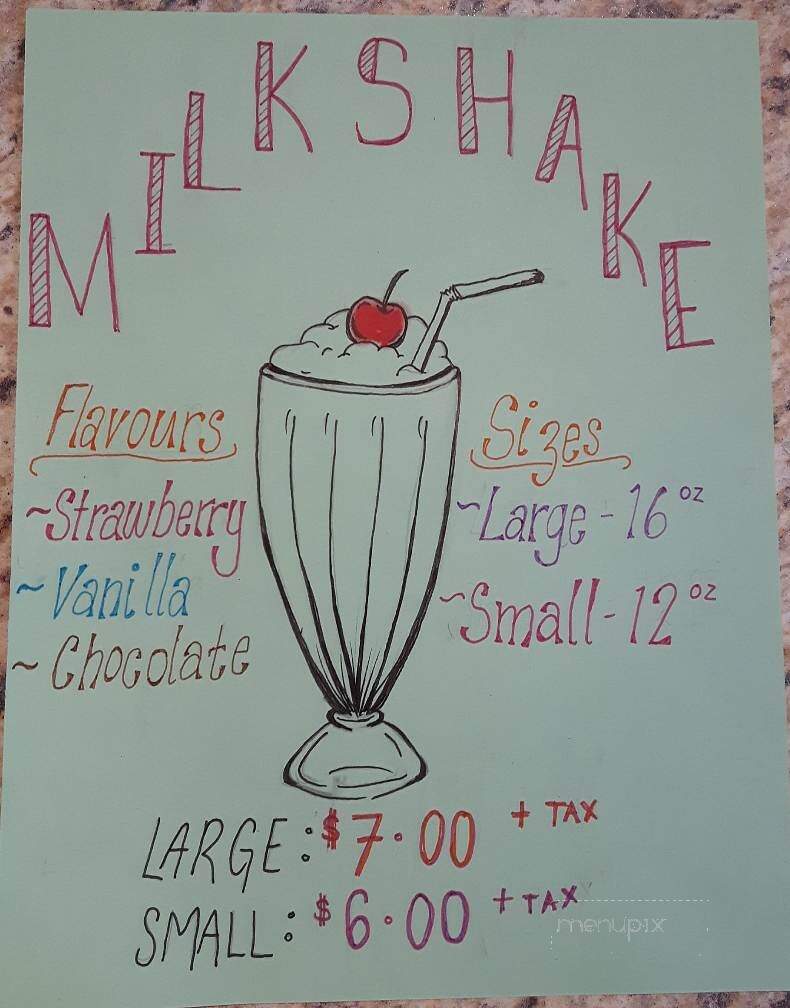 MILKSHAKE
Flavours
~Strawberry
~Vanilla
~Chocolate
Sizes
~Large-16oz
~Small-12oz
LARGE:$7.00 + TAX
SMALL:$6.00 + TAX
menupix